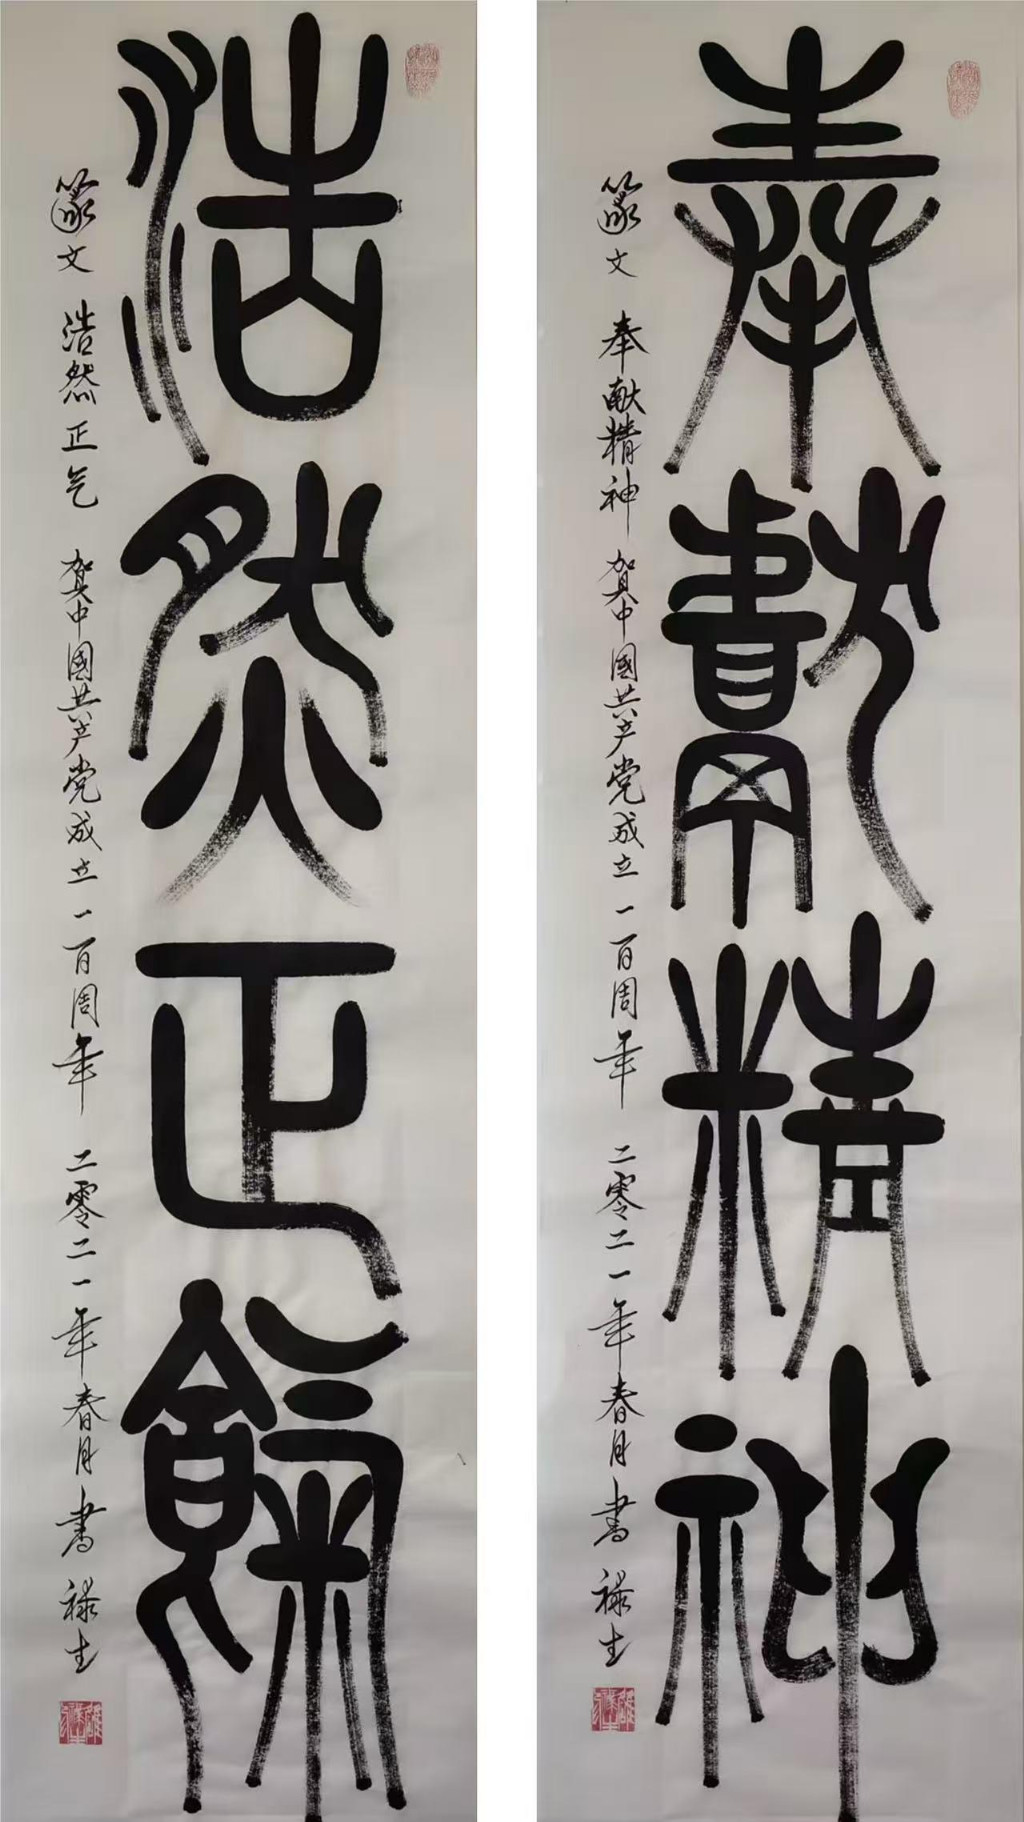 奉獻精神
篆文 奉献精神 贺中國共产党成立一百周年 二零二一年春月書 禄生
浩然正餼
篆文 浩然正气 贺中國共产党成立一百周年 二零二一年春月書 禄生